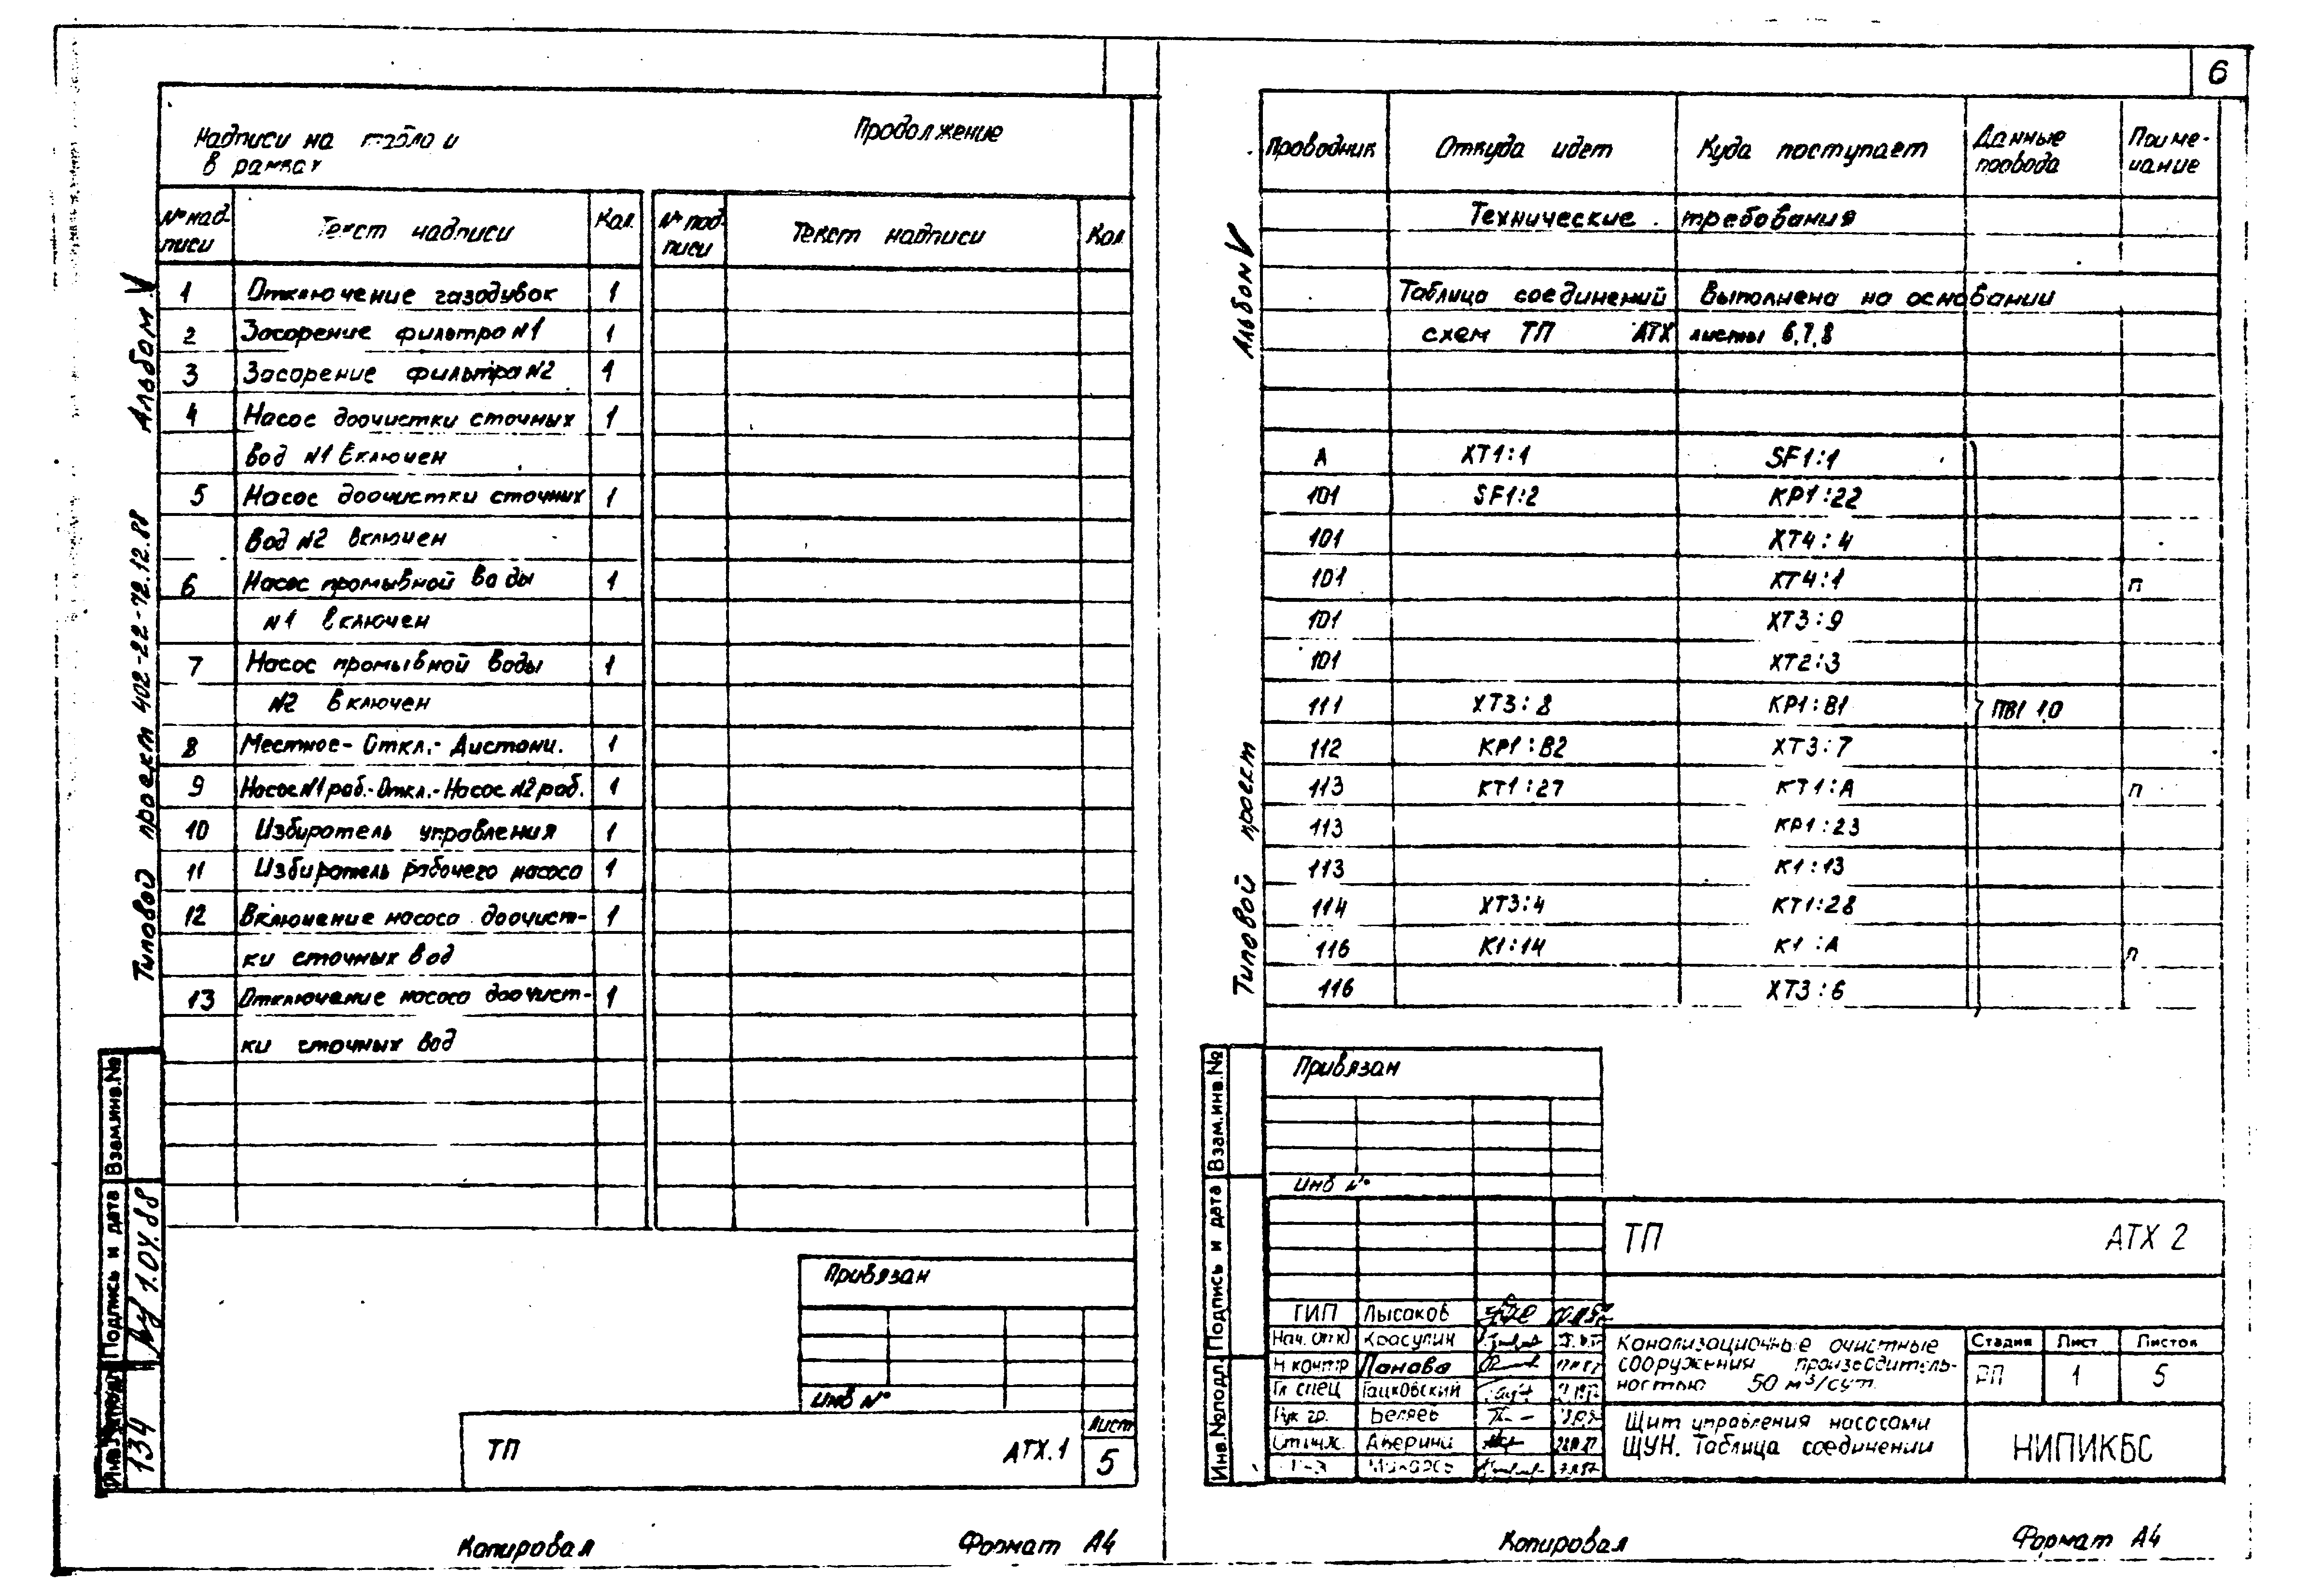 6
Надписи на табло и
в рамках
Продолжение
№ над-
писи
Текст надписи
Кол.
№ над-
писи
Текст надписи
Кол
1 Отключение газодувок 1
2 Засорение фильтра N1 1
3 Засорение фильтра N2 1
4 Насос доочистки сточных 1
вод N1 включен
5 Насос доочистки сточных 1
вод N2 включен
6 Насос промывной воды 1
N1 включен
7 Насос промывной воды 1
N2 включен
8 Местное- Откл.- Дистанц. 1
9 Насос N1 раб.- Откл.- Насос N2 раб. 1
10 Избиратель управления 1
11 Избиратель рабочего насоса 1
12 Включение насоса доочист- 1
ки сточных вод
13 Отключение насоса доочист- 1
ки сточных вод
Типовой проект 402-22-72.12.88 Альбом V
Взам.инв.№
Подпись и дата
1.04.88
134
Привязан
Инв №
ТП АТХ.1
Лист
5
Копировал Формат А4
Проводник Откуда идет Куда поступает
Данные
провода
Приме-
чание
Технические требования
Таблица соединений выполнена на основании
схем ТП АТХ листы 6,7,8
А ХТ1:1 SF1:1
101 SF1:2 КР1:22
101 ХТ4:4
101 ХТ4:1 п
101 ХТ3:9
101 ХТ2:3
111 ХТ3:8 КР1:В1 ПВ1 1,0
112 КР1:В2 ХТ3:7
113 КТ1:27 КТ1:А п
113 КР1:23
113 К1:13
114 ХТ3:4 КТ1:28
116 К1:14 К1:А п
116 ХТ3:6
Типовой проект Альбом V
Взам.инв.№
Подпись и дата
Инв.№подл.
Привязан
Инв №
ТП АТХ 2
ГИП Лысаков
Нач. отд Красулин
Н контр Панова
Гл спец Гацковский
Рук гр. Беляев
Ст инж. Аверина
Канализационные очистные
сооружения производитель-
ностью 50 м³/сут.
Стадия Лист Листов
РП 1 5
Щит управления насосами
ЩУН. Таблица соединений
НИПИКБС
Копировал Формат А4